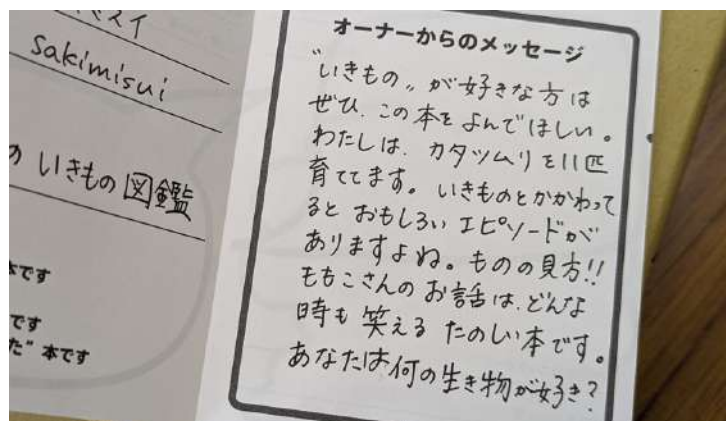 スイ
sakimisui
の いきもの 図鑑
本です
です
た” 本です
オーナーからのメッセージ
“いきもの„ が好きな方は
ぜひ、この本をよんでほしい。
わたしは、カタツムリを11匹
育ててます。いきものとかかわって
ると おもしろい エピソードが
ありますよね。ものの見方!!
ももこさんの お話は、どんな
時も 笑える たのしい本です。
あなたは何の生き物が好き?